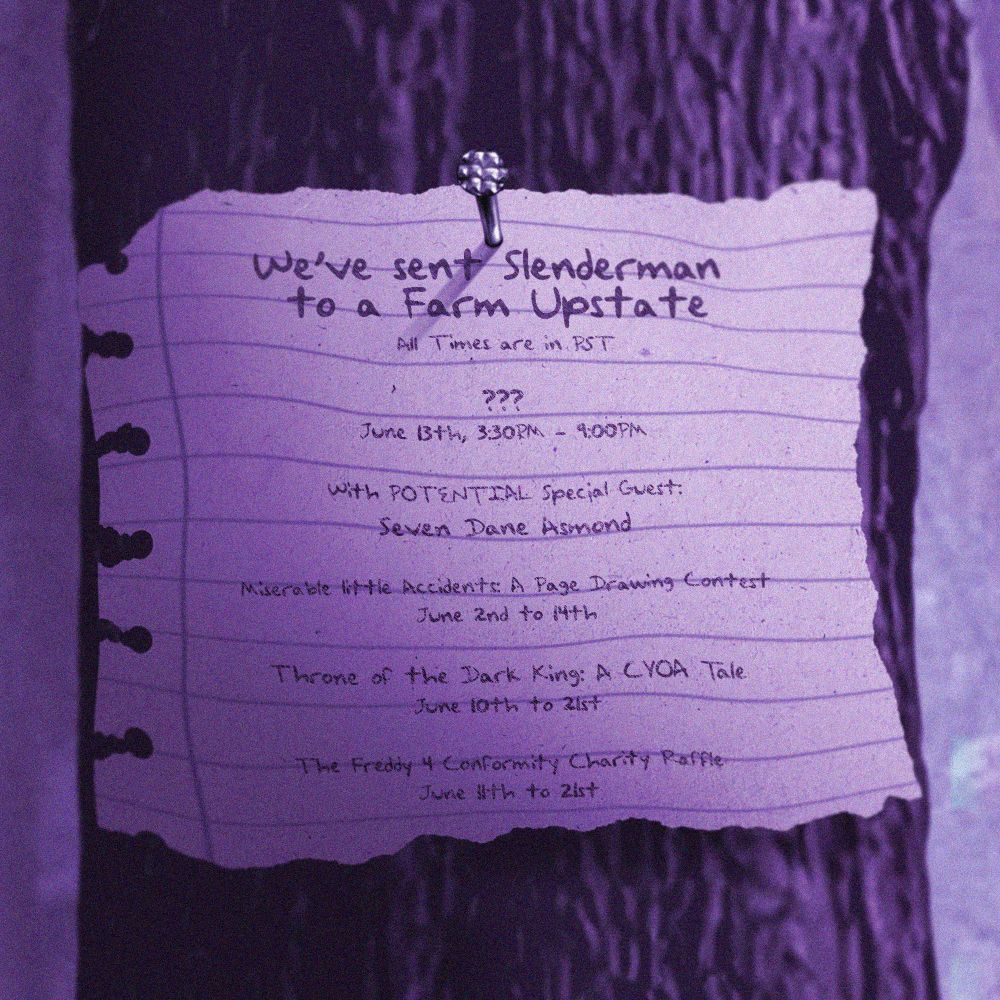 We've sent Slenderman
to a Farm Upstate
All Times are in PST
???
June 13th, 3:30PM - 9:00PM
With POTENTIAL Special Guest:
Seven Dane Asmond
Miserable little Accidents: A Page Drawing Contest
June 2nd to 14th
Throne of the Dark King: A CYOA Tale
June 10th to 21st
The Freddy 4 Conformity Charity Raffle
June 11th to 21st